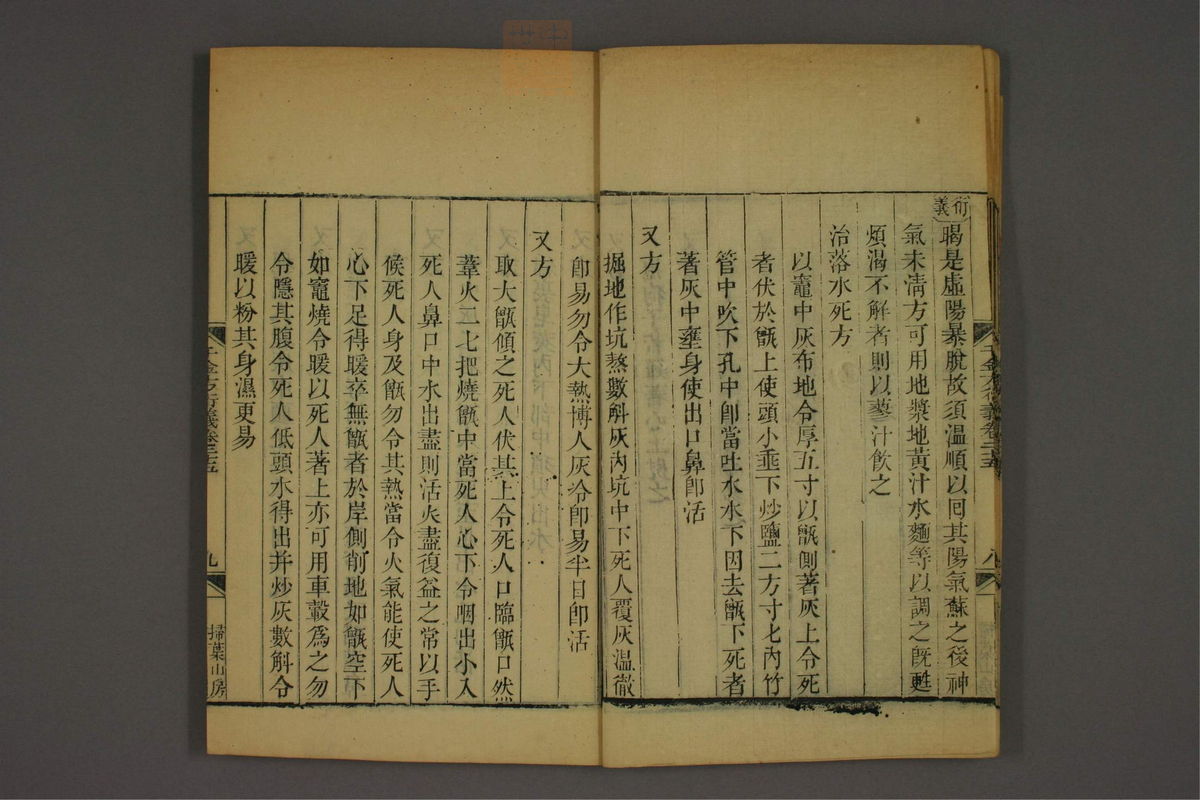 衍義
暍是虛陽暴脫故須溫順以回其陽氣蘇之後神
氣未清方可用地漿地黃汁水麵等以調之旣甦
煩渴不解者則以蓼汁飲之
治落水死方
以竈中灰布地令厚五寸以甑側著灰上令死
者伏於甑上使頭小垂下炒鹽二方寸匕內竹
管中吹下孔中卽當吐水水下因去甑下死者
著灰中壅身使出口鼻卽活
又方
掘地作坑熬數斛灰內坑中下死人覆灰溫徹
卽易勿令大熱博人灰冷卽易半日卽活
又方
取大甑傾之死人伏其上令死人口臨甑口然
葦火二七把燒甑中當死人心下令咽出小入
死人鼻口中水出盡則活火盡復益之常以手
候死人身及甑勿令其熱當令火氣能使死人
心下足得暖卒無甑者於岸側削地如甑空下
如竈燒令暖以死人著上亦可用車轂爲之勿
令隱其腹令死人低頭水得出并炒灰數斛令
暖以粉其身濕更易
千金方衍義卷二十五
八
千金方衍義卷二十五
九
掃葉山房